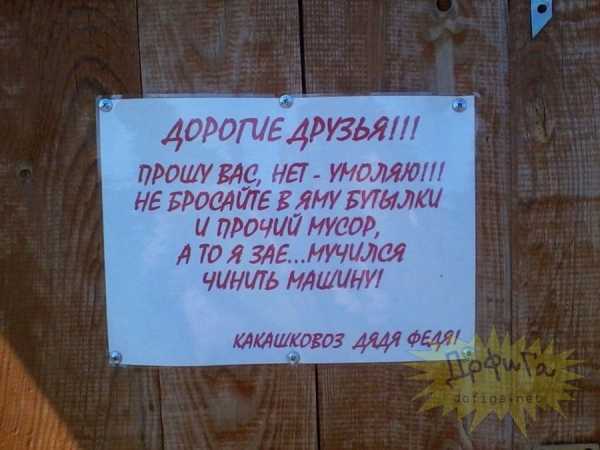 ДОРОГИЕ ДРУЗЬЯ!!!
ПРОШУ ВАС, НЕТ - УМОЛЯЮ!!!
НЕ БРОСАЙТЕ В ЯМУ БУТЫЛКИ
И ПРОЧИЙ МУСОР,
А ТО Я ЗАЕ...МУЧИЛСЯ
ЧИНИТЬ МАШИНУ!
КАКАШКОВОЗ ДЯДЯ ФЕДЯ!
ДоФиГа
dofiga.net